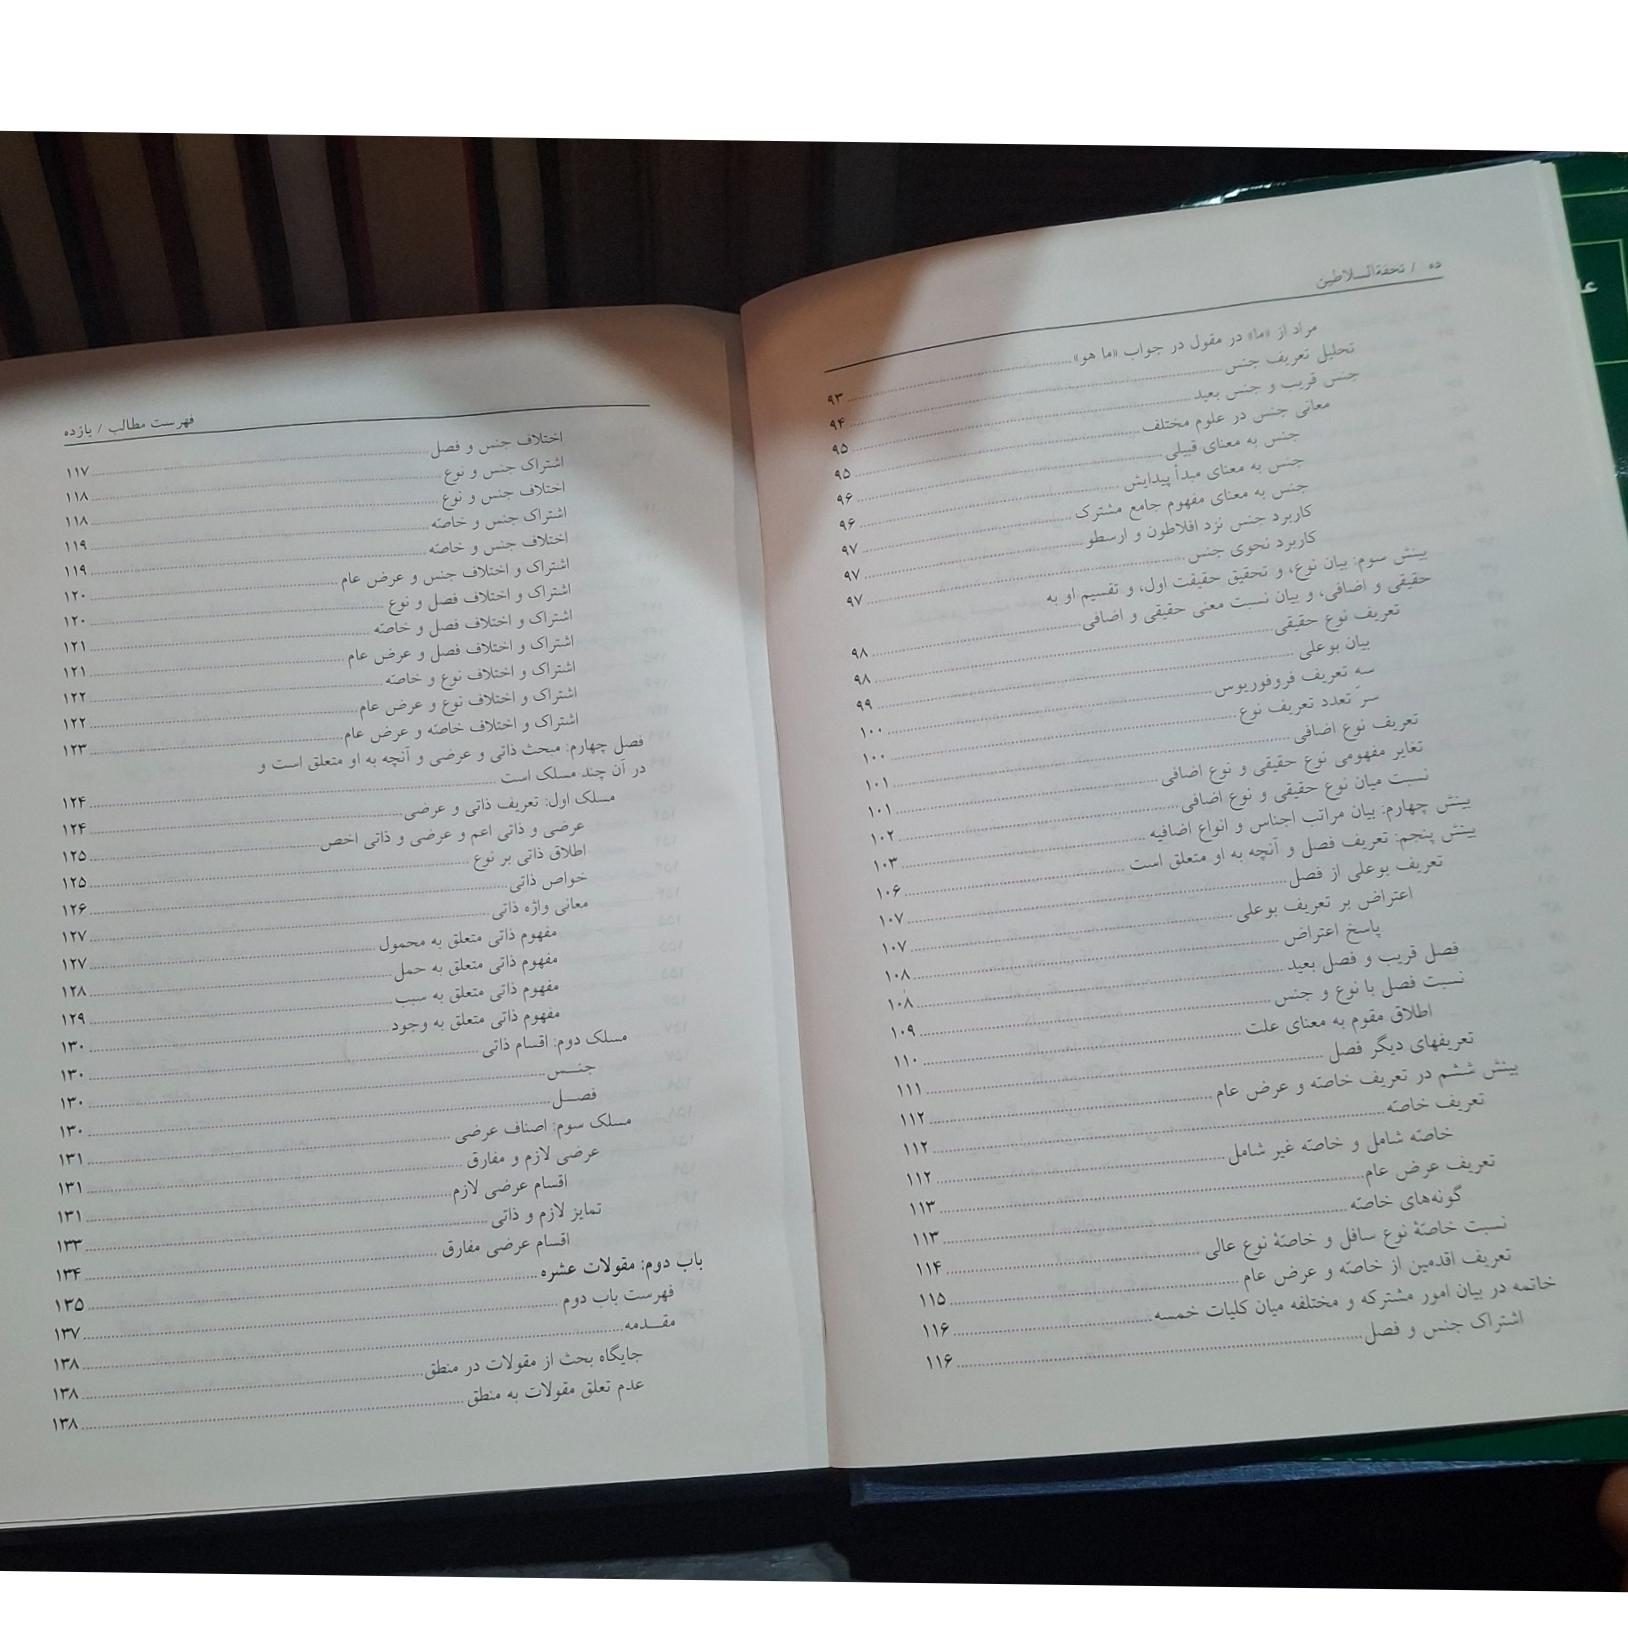 ده / تحفةالسلاطین
مراد از «ما» در مقول در جواب «ما هو» ۹۳
تحلیل تعریف جنس ۹۴
جنس قریب و جنس بعید ۹۵
معانی جنس در علوم مختلف ۹۵
جنس به معنای قبیلی ۹۶
جنس به معنای مبدأ پیدایش ۹۶
جنس به معنای مفهوم جامع مشترک ۹۷
کاربرد جنس نزد افلاطون و ارسطو ۹۷
کاربرد نحوی جنس ۹۷
بینش سوم: بیان نوع، و تحقیق حقیقت اول، و تقسیم او به
حقیقی و اضافی، و بیان نسبت معنی حقیقی و اضافی ۹۸
تعریف نوع حقیقی ۹۸
بیان بوعلی ۹۹
سه تعریف فروفوریوس ۱۰۰
سرّ تعدد تعریف نوع ۱۰۰
تعریف نوع اضافی ۱۰۱
تغایر مفهومی نوع حقیقی و نوع اضافی ۱۰۱
نسبت میان نوع حقیقی و نوع اضافی ۱۰۲
بینش چهارم: بیان مراتب اجناس و انواع اضافیه ۱۰۳
بینش پنجم: تعریف فصل و آنچه به او متعلق است ۱۰۶
تعریف بوعلی از فصل ۱۰۷
اعتراض بر تعریف بوعلی ۱۰۷
پاسخ اعتراض ۱۰۸
فصل قریب و فصل بعید ۱۰۸
نسبت فصل با نوع و جنس ۱۰۹
اطلاق مقوم به معنای علت ۱۱۰
تعریفهای دیگر فصل ۱۱۱
بینش ششم در تعریف خاصّه و عرض عام ۱۱۲
تعریف خاصّه ۱۱۲
خاصّه شامل و خاصّه غیر شامل ۱۱۲
تعریف عرض عام ۱۱۳
گونه‌های خاصّه ۱۱۳
نسبت خاصّهٔ نوع سافل و خاصّهٔ نوع عالی ۱۱۴
تعریف اقدمین از خاصّه و عرض عام ۱۱۵
خاتمه در بیان امور مشترکه و مختلفه میان کلیات خمسه ۱۱۶
اشتراک جنس و فصل ۱۱۶
فهرست مطالب / یازده
اختلاف جنس و فصل ۱۱۷
اشتراک جنس و نوع ۱۱۸
اختلاف جنس و نوع ۱۱۸
اشتراک جنس و خاصّه ۱۱۹
اختلاف جنس و خاصّه ۱۱۹
اشتراک و اختلاف جنس و عرض عام ۱۲۰
اشتراک و اختلاف فصل و نوع ۱۲۰
اشتراک و اختلاف فصل و خاصّه ۱۲۱
اشتراک و اختلاف فصل و عرض عام ۱۲۱
اشتراک و اختلاف نوع و خاصّه ۱۲۲
اشتراک و اختلاف نوع و عرض عام ۱۲۲
اشتراک و اختلاف خاصّه و عرض عام ۱۲۳
فصل چهارم: مبحث ذاتی و عرضی و آنچه به او متعلق است و
در آن چند مسلک است ۱۲۴
مسلک اول: تعریف ذاتی و عرضی ۱۲۴
عرضی و ذاتی اعم و عرضی و ذاتی اخص ۱۲۵
اطلاق ذاتی بر نوع ۱۲۵
خواص ذاتی ۱۲۶
معانی واژه ذاتی ۱۲۷
مفهوم ذاتی متعلق به محمول ۱۲۷
مفهوم ذاتی متعلق به حمل ۱۲۸
مفهوم ذاتی متعلق به سبب ۱۲۹
مفهوم ذاتی متعلق به وجود ۱۳۰
مسلک دوم: اقسام ذاتی ۱۳۰
جنــس ۱۳۰
فصــل ۱۳۰
مسلک سوم: اصناف عرضی ۱۳۱
عرضی لازم و مفارق ۱۳۱
اقسام عرضی لازم ۱۳۱
تمایز لازم و ذاتی ۱۳۳
اقسام عرضی مفارق ۱۳۴
باب دوم: مقولات عشره ۱۳۵
فهرست باب دوم ۱۳۷
مقــدمه ۱۳۸
جایگاه بحث از مقولات در منطق ۱۳۸
عدم تعلق مقولات به منطق ۱۳۸